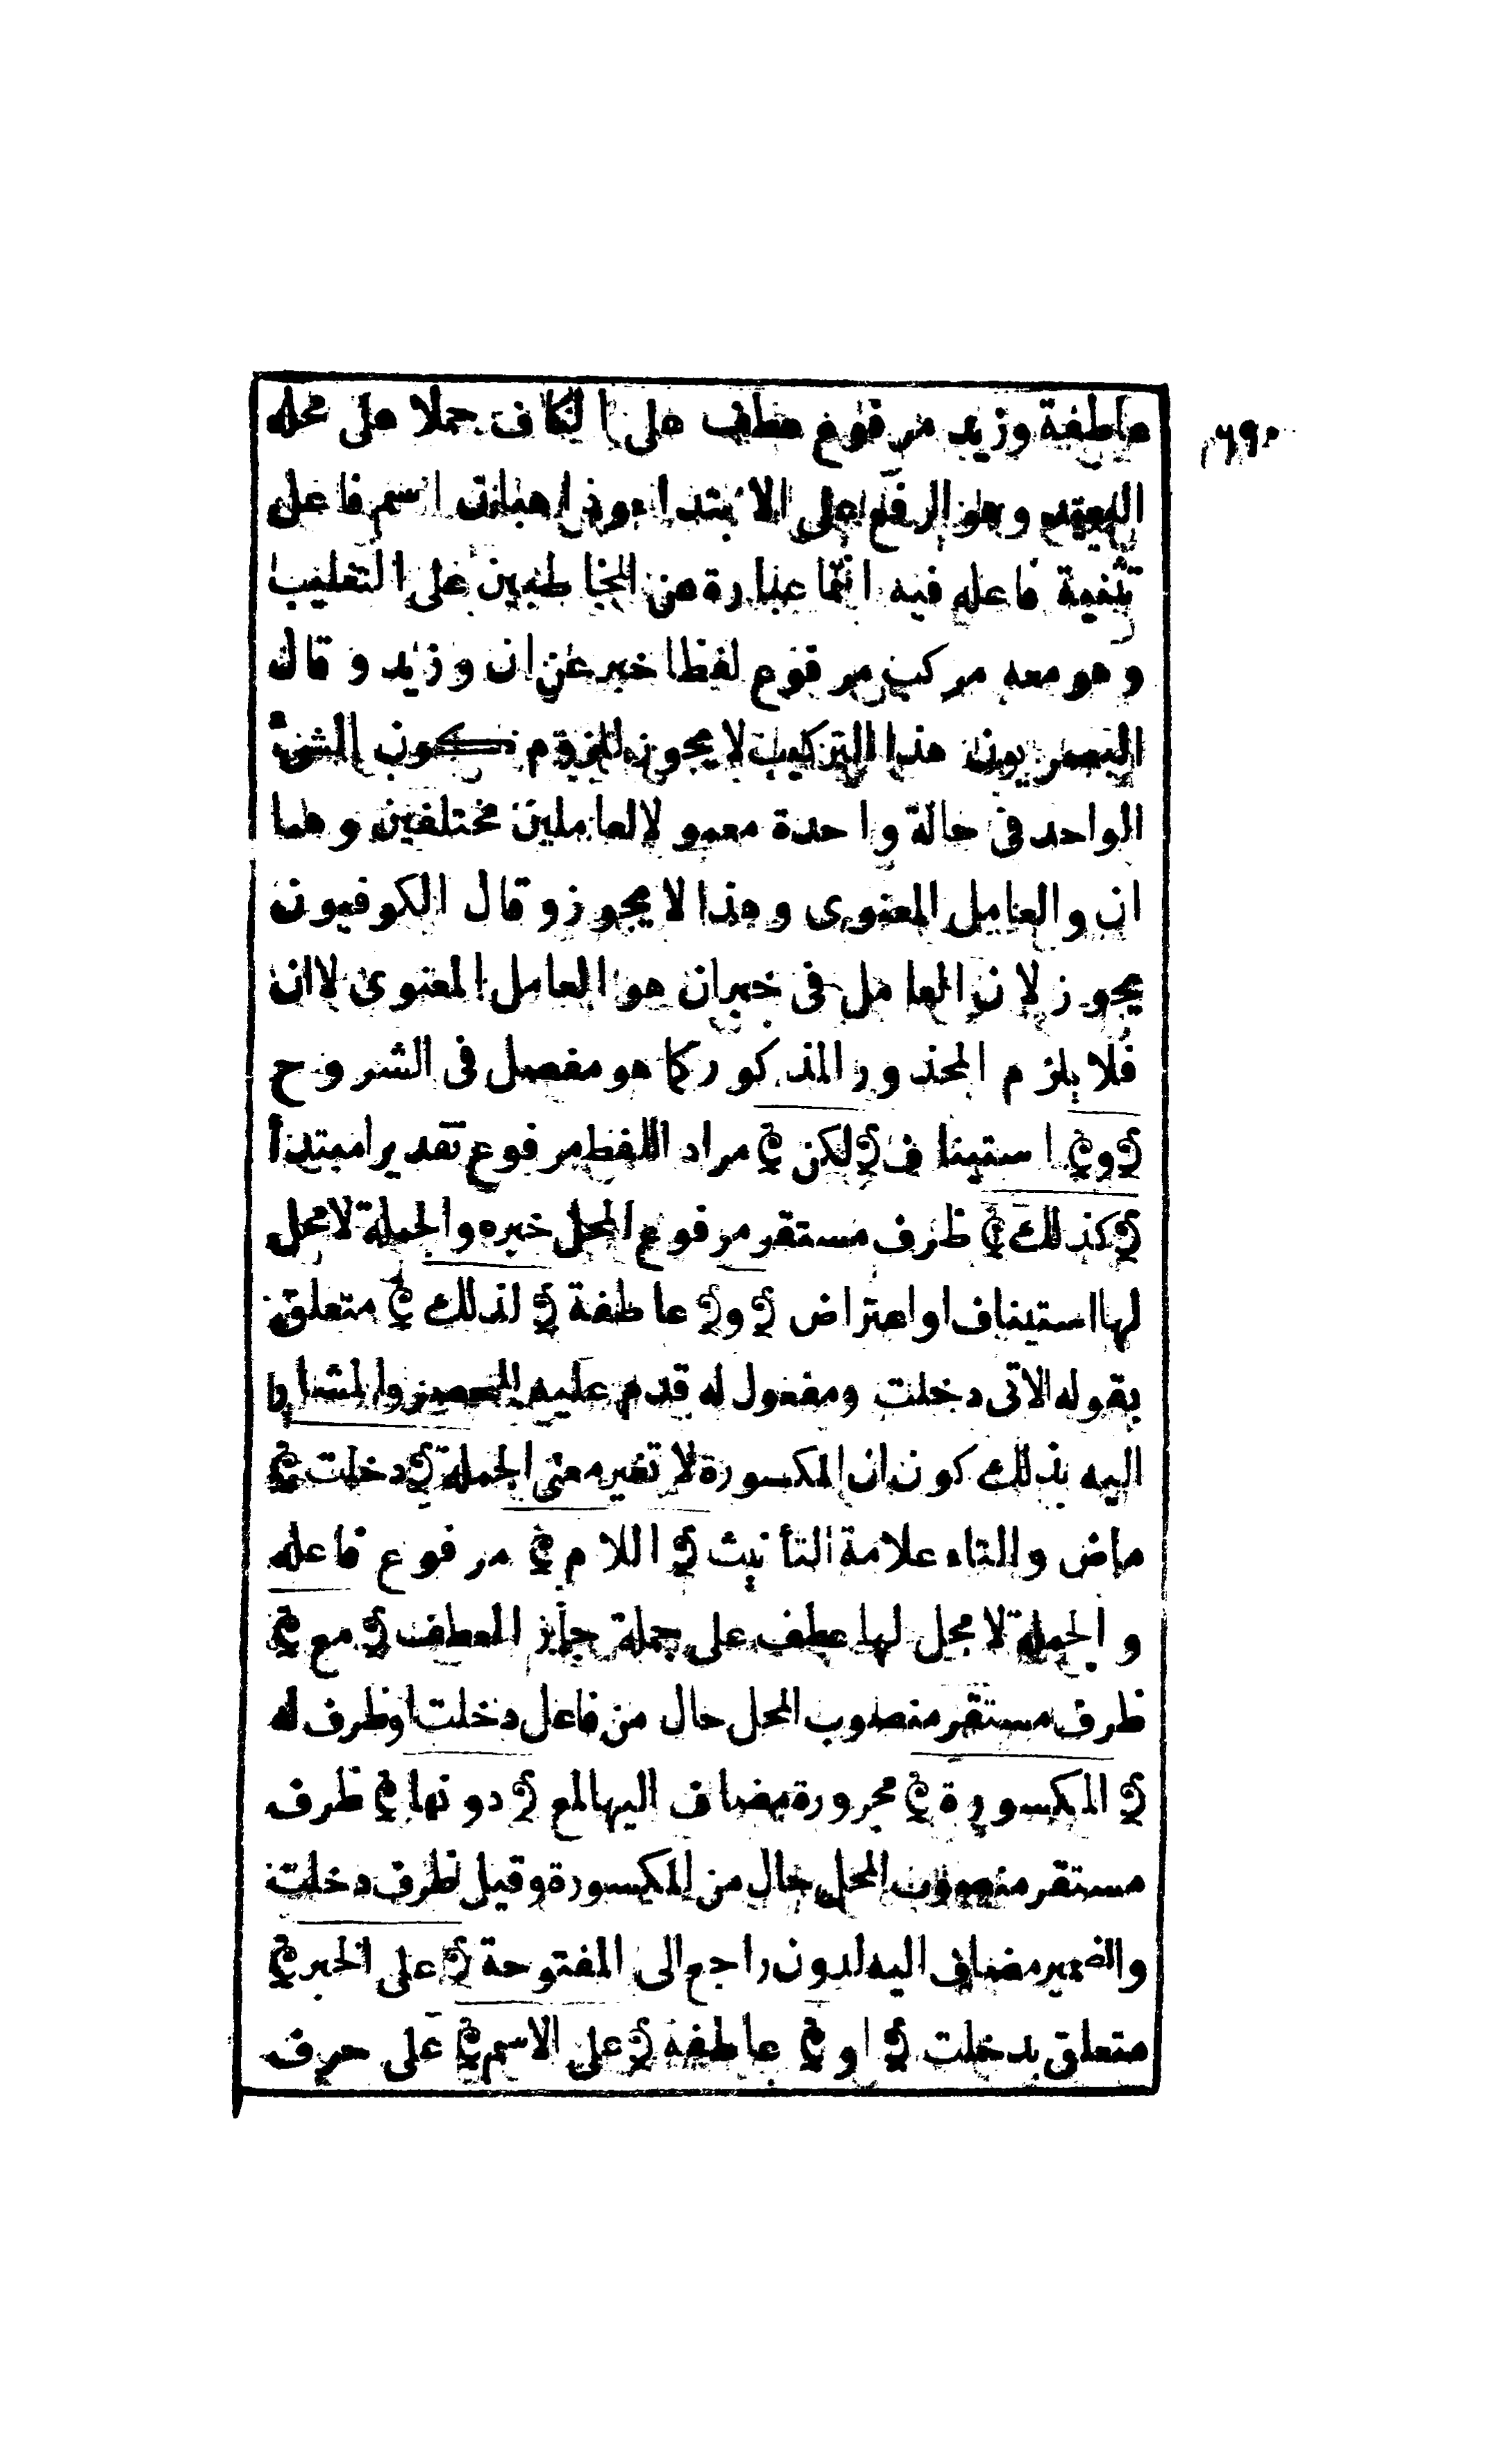 عاطفة وزيد مرفوع عطف على الكاف حملا على محله
البعيد وهو الرفع على الابتداء وذاهبان اسم فاعل
تثنية فاعله فيه انتما عبارة عن المخاطبين على التغليب
وهو معه مركب مرفوع لفظا خبر عن ان وزيد وقال
البصريون هذا التركيب لا يجوز للزوم كون الشئ
الواحد فى حالة واحدة معمولا لعاملين مختلفين وهما
ان والعامل المعنوى وهذا لا يجوز وقال الكوفيون
يجوز لان العامل فى خبر ان هو العامل المعنوى لا ان
فلا يلزم المحذور المذكور كما هو مفصل فى الشروح
﴿و﴾ استيناف ﴿لكن﴾ مراد اللفظ مرفوع تقديرا مبتدأ
﴿كذلك﴾ ظرف مستقر مرفوع المحل خبره والجملة لا محل
لها استيناف او اعتراض ﴿و﴾ عاطفة ﴿لذلك﴾ متعلق
بقوله الاتى دخلت ومفعول له قدم عليه للحصر والمشار
اليه بذلك كون ان المكسورة لا تغير معنى الجملة ﴿دخلت﴾
ماض والتاء علامة التأنيث ﴿اللام﴾ مرفوع فاعله
والجملة لا محل لها عطف على جملة جاز العطف ﴿مع﴾
ظرف مستقر منصوب المحل حال من فاعل دخلت او ظرف له
﴿المكسورة﴾ مجرورة مضاف اليها لمع ﴿دونها﴾ ظرف
مستقر منصوب المحل حال من المكسورة وقيل ظرف دخلت
والضمير مضاف اليه لدون راجع الى المفتوحة ﴿على الخبر﴾
متعلق بدخلت ﴿او﴾ عاطفة ﴿على الاسم﴾ على حرف